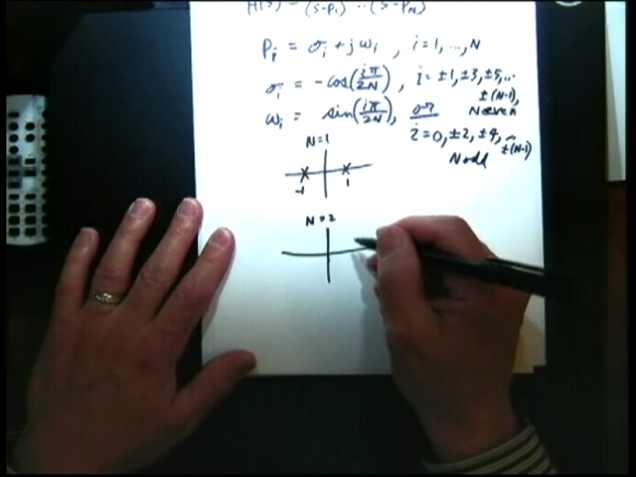 H(s) = (s-p₁) ... (s-p_N)
P_i = σ_i + jω_i , i = 1, ..., N
σ_i = -cos(iπ/2N) , i = ±1, ±3, ±5, ...
±(N-1),
N even
ω_i = sin(iπ/2N), or
i = 0, ±2, ±4, ... ±(N-1)
N odd
N=1
-1 1
N=2